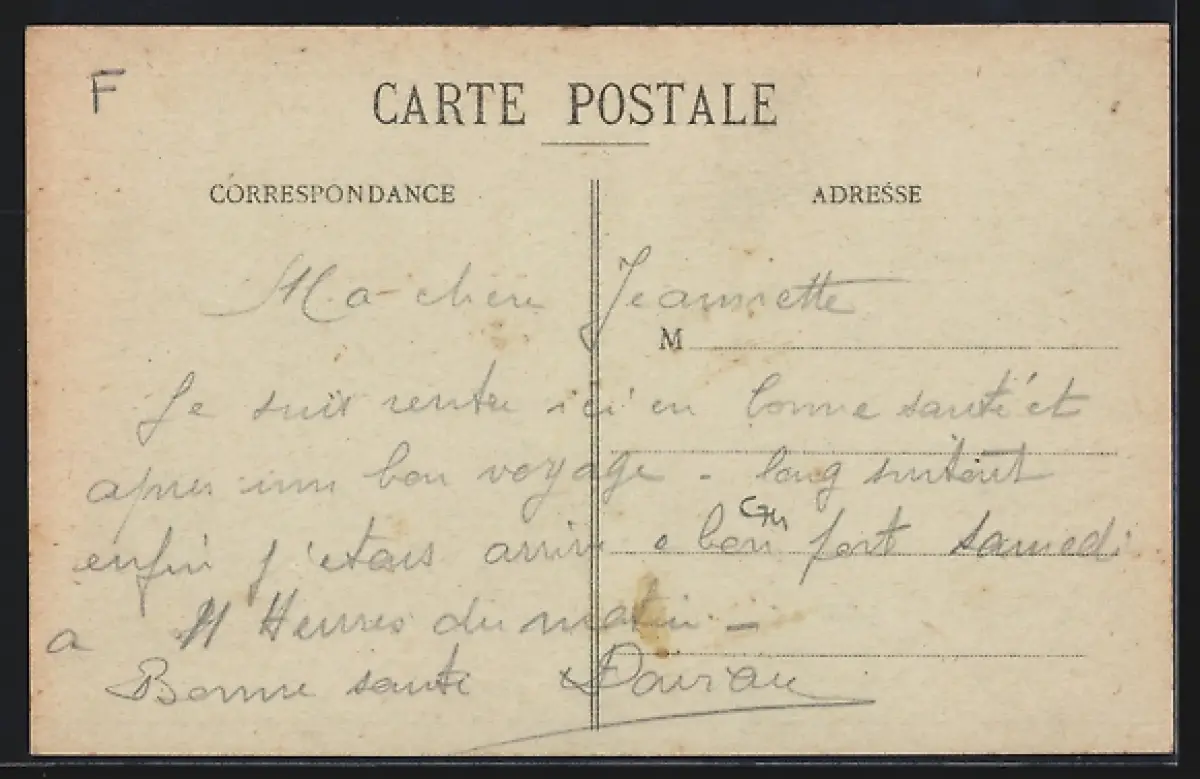 F
CARTE POSTALE
CORRESPONDANCE
ADRESSE
Ma chère Jeannette
M
Je suis rentré ici en bonne santé et
apres un bon voyage - long surtout
enfin j'etais arrivé a bon port samedi
a 11 Heures du matin. -
Bonne santé